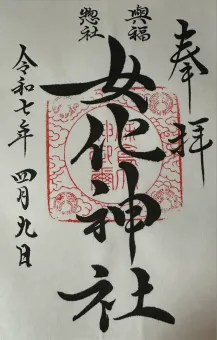 奉拝
興福
惣社
女化神社
令和七年 四月九日